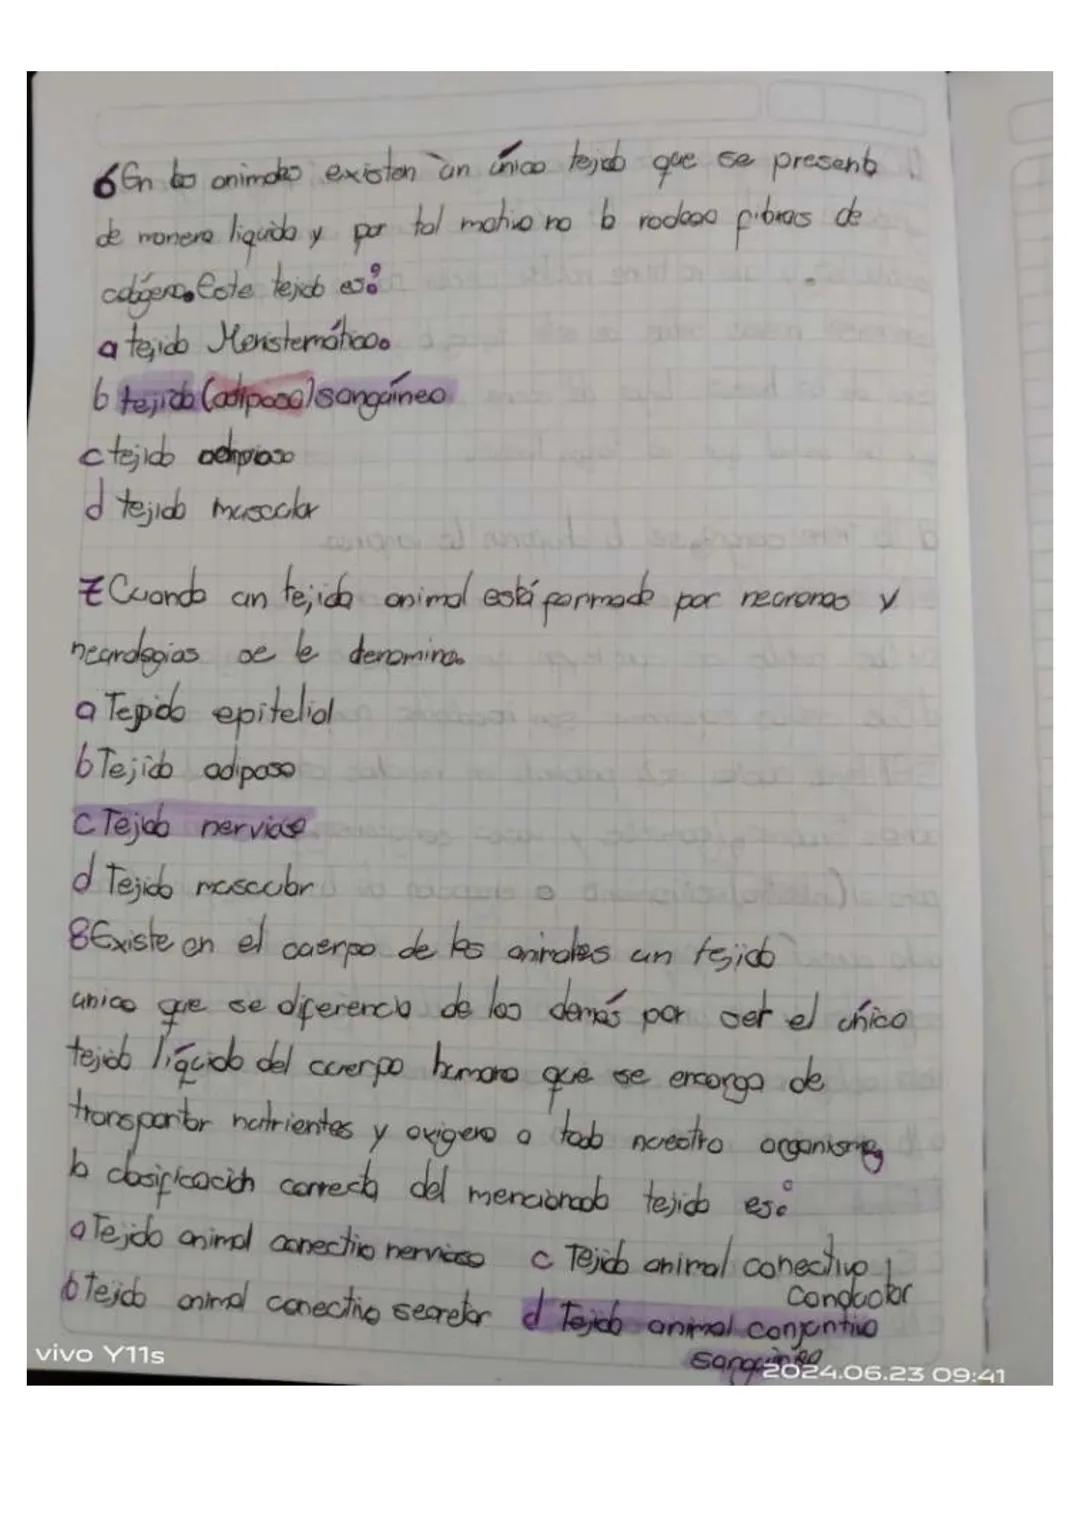 6 En los animales existen un único tejido que se presenta
de manera liquida y por tal motivo no lo rodean fibras de
colágeno. Este tejido es:
a tejido Meristemático.
b tejido (adiposo) sanguíneo
c tejido adiposo
d tejido muscular
7 Cuando un tejido animal está formado por neuronas y
neurologias se le denomina.
a Tejido epitelial
b Tejido adiposo
c Tejido nervioso
d Tejido muscular
8 Existe en el cuerpo de los animales un tejido
unico que se diferencia de los demás por ser el único
tejido líquido del cuerpo humano que se encarga de
transportar nutrientes y oxigeno a todo nuestro organismo,
la clasificación correcta del mencionado tejido es:
a Tejido animal conectivo nervioso
b Tejido animal conectivo secretor
c Tejido animal conectivo
conductor
d Tejido animal conjuntivo
sanguíneo
vivo Y11s
2024.06.23 09:41